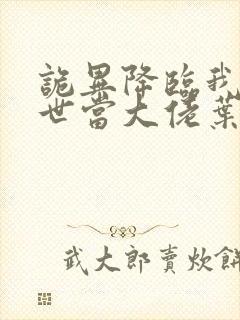 詭異降臨我
世當大佬葉
武大郎賣炊餅